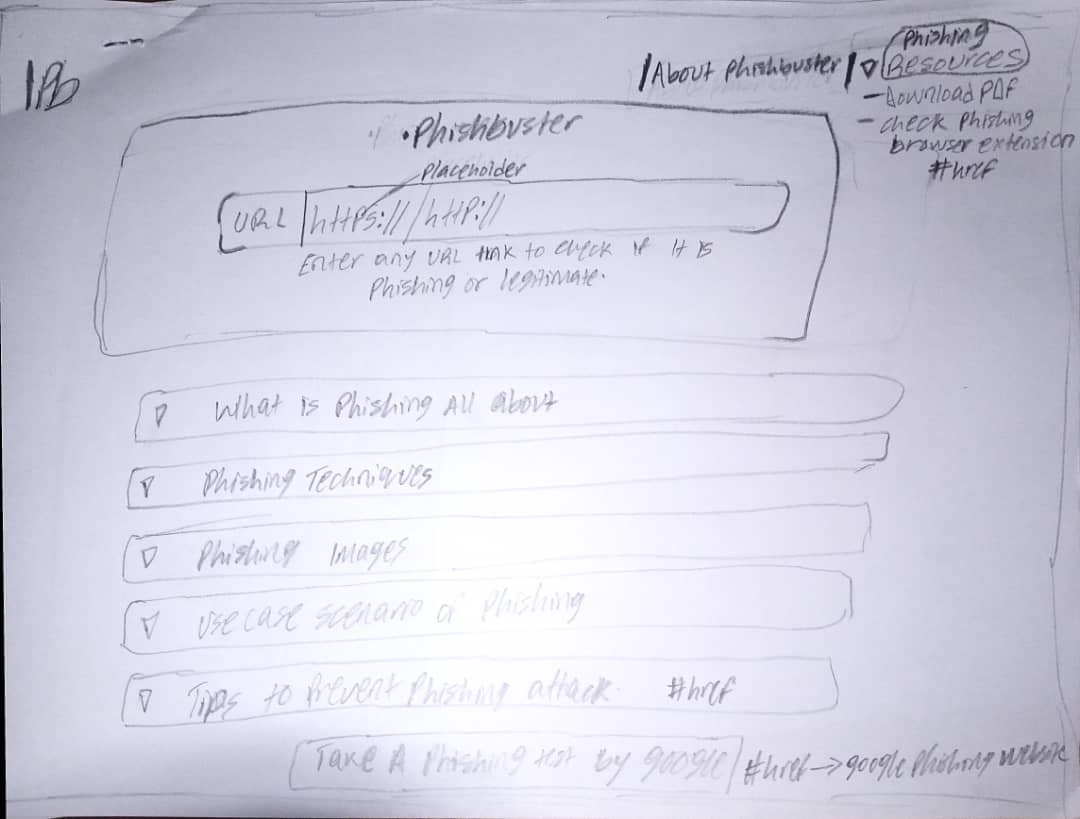 Pb
About Phishbuster
Phishing
Resources
- Download PDF
- check Phishing
browser extension
#href
Phishbuster
Placeholder
URL https:// / http://
Enter any URL link to check if it is
Phishing or legitimate.
What is Phishing All about
Phishing Techniques
Phishing Images
Use case scenario of Phishing
Tips to Prevent Phishing attack. #href
Take A Phishing test by google #href -> google Phishing website